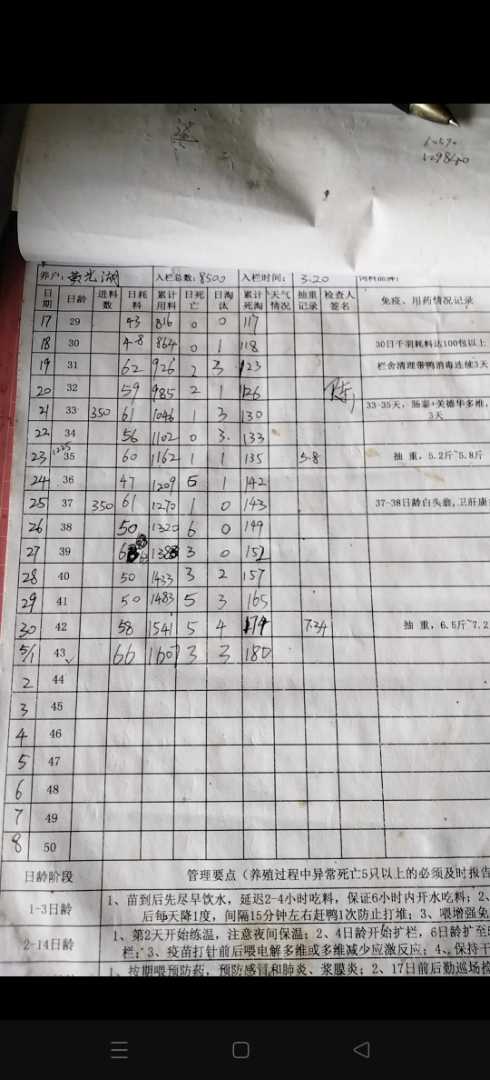 养户: 黄光湖 入栏总数: 8500 入栏时间: 3.20 饲料品牌:
日期 日龄 进料数 日耗料 累计用料 日死亡 日淘汰 累计死淘 天气情况 抽重记录 检查人签名 免疫、用药情况记录
17 29 43 816 0 0 117
18 30 48 864 0 1 118 30日千羽耗料达100包以上
19 31 62 926 2 3 123 栏舍清理带鸭消毒连续3天
20 32 59 985 2 1 126 陈
21 33 350 61 1046 1 3 130 33-35天,肠泰+美德华多维,3天
22 34 56 1102 0 3 133
23 35 60 1162 1 1 135 5.8 抽 重,5.2斤~5.8斤
24 36 47 1209 5 1 142
25 37 350 61 1270 1 0 143 37-38日龄白头翁,卫肝康
26 38 50 1320 6 0 149
27 39 63 1383 3 0 152
28 40 50 1433 3 2 157
29 41 50 1483 5 3 165
30 42 58 1541 5 4 174 7.24 抽 重,6.5斤~7.2
5/1 43 66 1607 3 3 180
2 44
3 45
4 46
5 47
6 48
7 49
8 50
日龄阶段 管理要点(养殖过程中异常死亡5只以上的必须及时报告
1-3日龄 1、苗到后先尽早饮水,延迟2-4小时吃料,保证6小时内开水吃料;2、
后每天降1度,间隔15分钟左右赶鸭1次防止打堆;3、喂增强免
2-14日龄 1、第2天开始练温,注意夜间保温;2、4日龄开始扩栏,6日龄扩至
栏;3、疫苗打针前后喂电解多维或多维减少应激反应;4、保持干
1、按期喂预防药,预防感冒和肺炎、浆膜炎;2、17日前后勤巡场